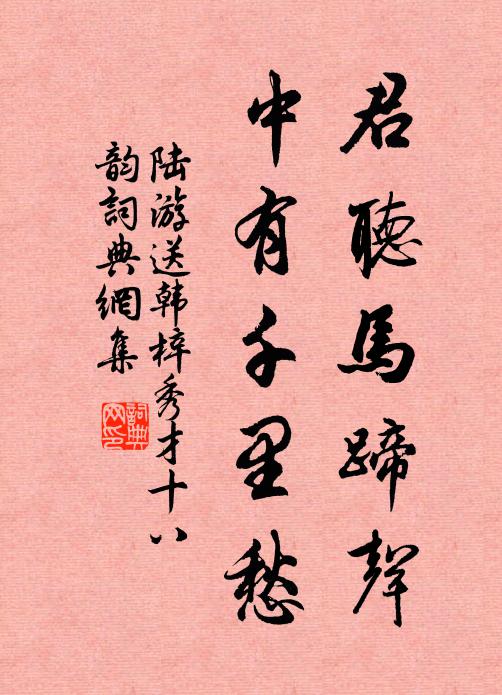 君聽馬蹄聲
中有千里愁
陆游送韩梓秀才十八
韵詞典網集
詞典网印